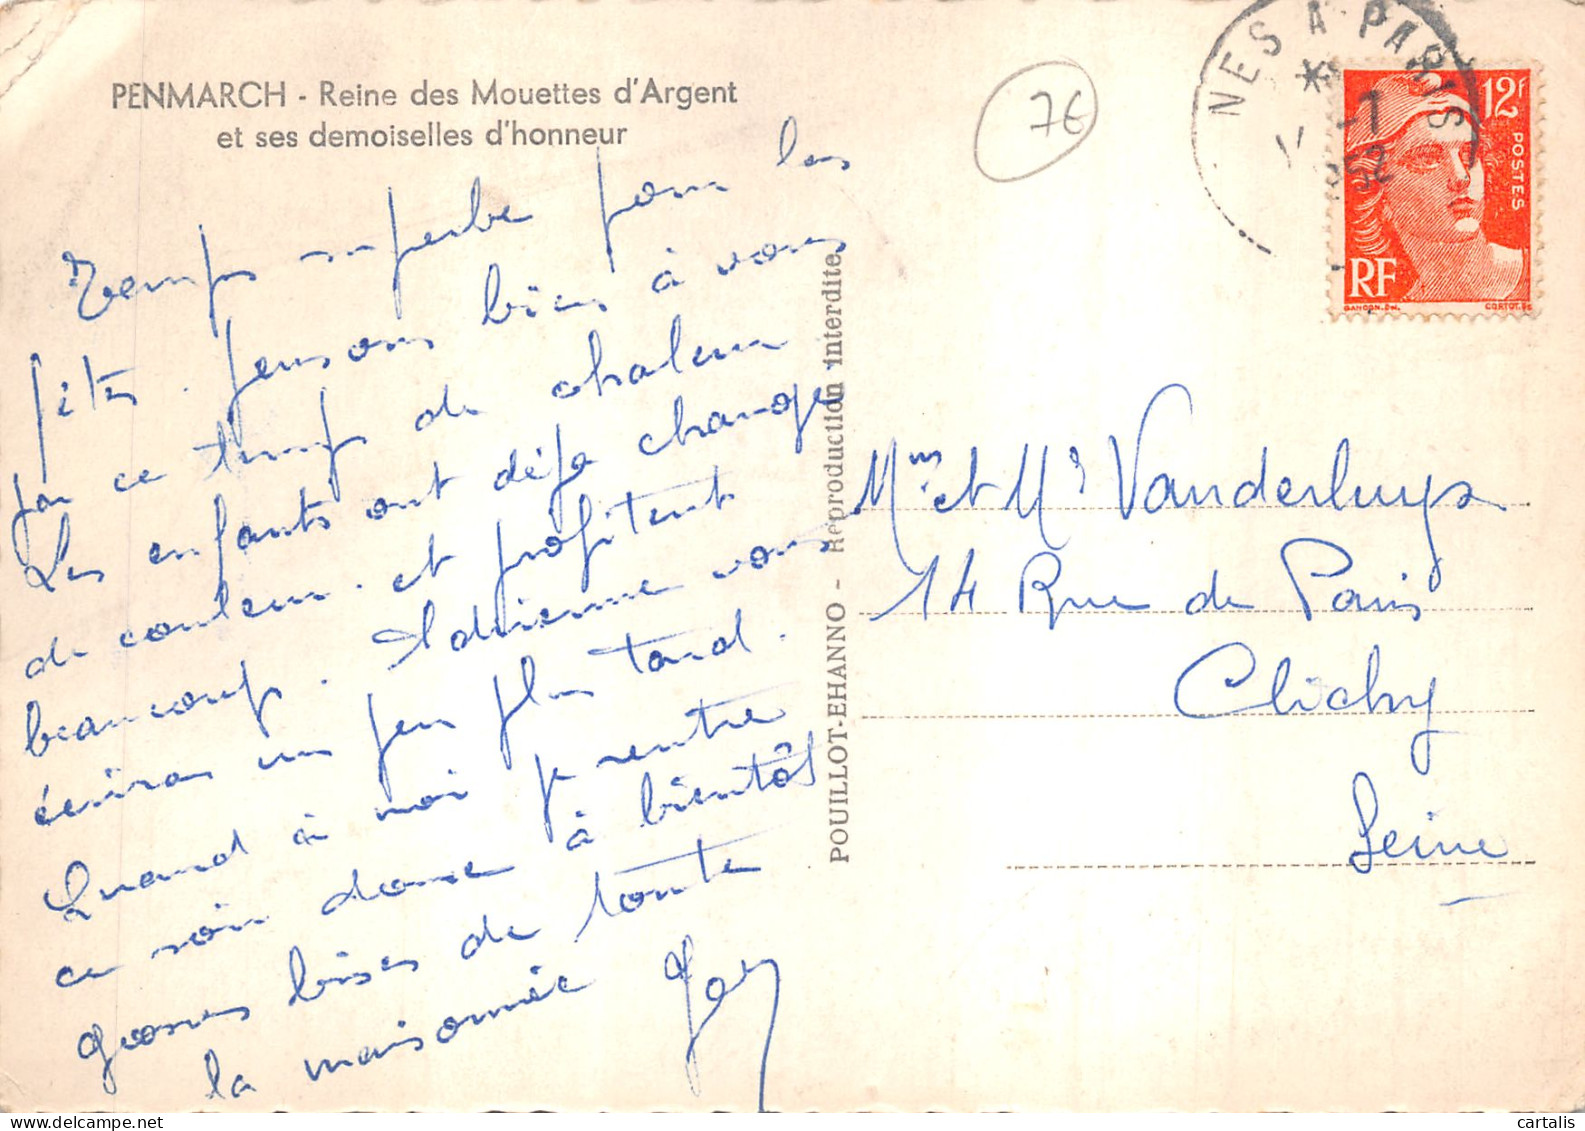 PENMARCH - Reine des Mouettes d'Argent
et ses demoiselles d'honneur
Temps superbe pour les
fêtes. Pensons bien à vous
par ce temps de chaleur
Les enfants ont déjà change
de couleur. et profitent
beaucoup. Adrienne vous
écriras un peu plus tard.
Quand à moi je rentre
ce soir donc à bientôt
grosses bises de toute
la maisonnée
POUILLOT-EHANNO - Reproduction interdite
76
NES A PARIS
-7
952
12f
POSTES
RF
GANDON.Del.
CORTOT.Sc
Mme et Mr Vanderluys
14 Rue de Paris
Clichy
Seine
delcampe.net
cartalis